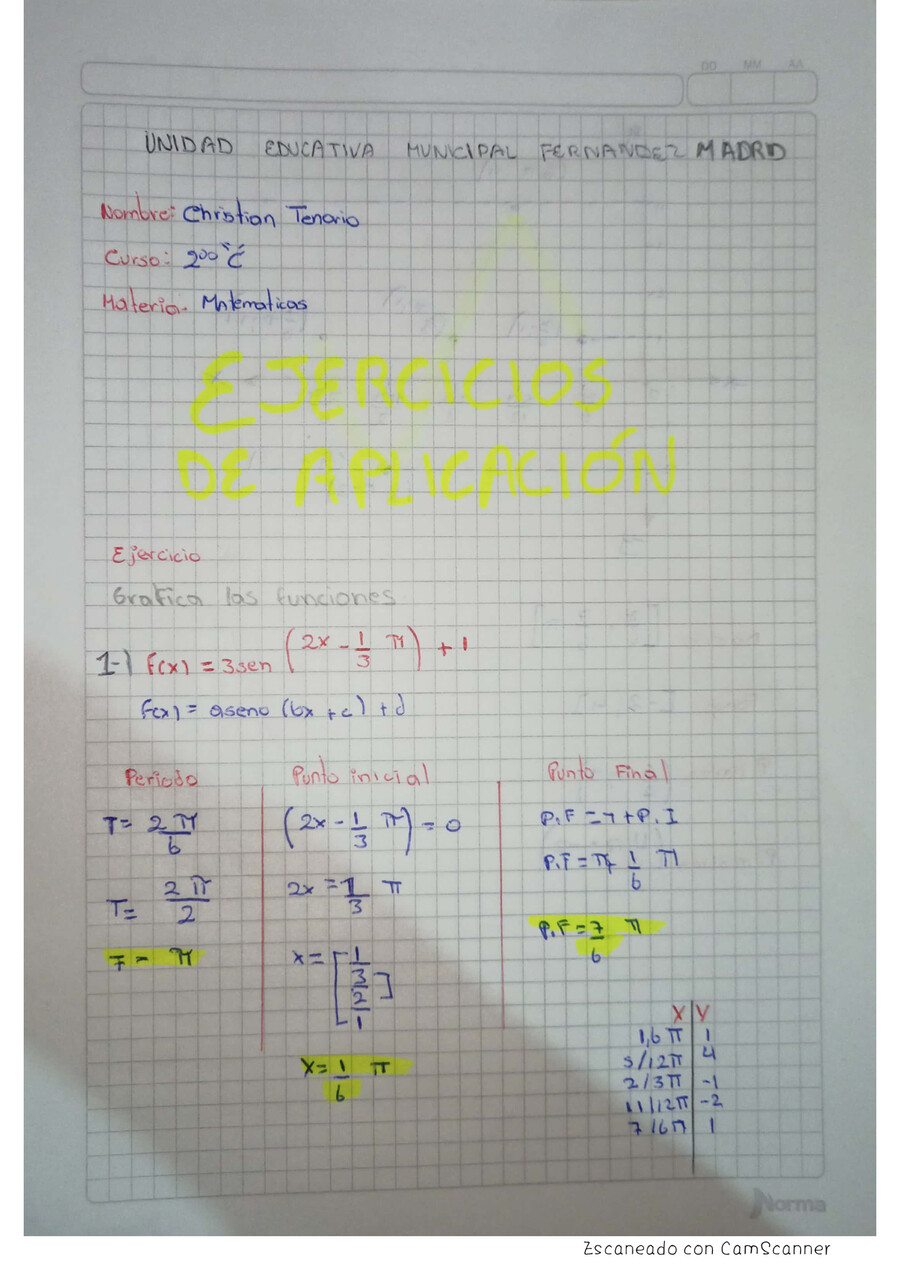 DD MM AA
UNIDAD EDUCATIVA MUNICIPAL FERNANDEZ MADRID
Nombre: Christian Tenorio
Curso: 2do "C"
Materia. Matematicas
EJERCICIOS
DE APLICACIÓN
Ejercicio
Grafica las funciones
1-) f(x) = 3sen (2x - 1/3 π) + 1
f(x) = aseno (bx + c) + d
Periodo
T= 2π/b
T= 2π/2
T = π
Punto inicial
(2x - 1/3 π) = 0
2x = 1/3 π
x = [1/3 / 2/1]
x = 1/6 π
Punto Final
P.F = T + P.I
P.F = π + 1/6 π
P.F = 7/6 π
X | Y
1,6 π | 1
5/12π | 4
2/3π | -1
11/12π | -2
7/6π | 1
Norma
Escaneado con CamScanner